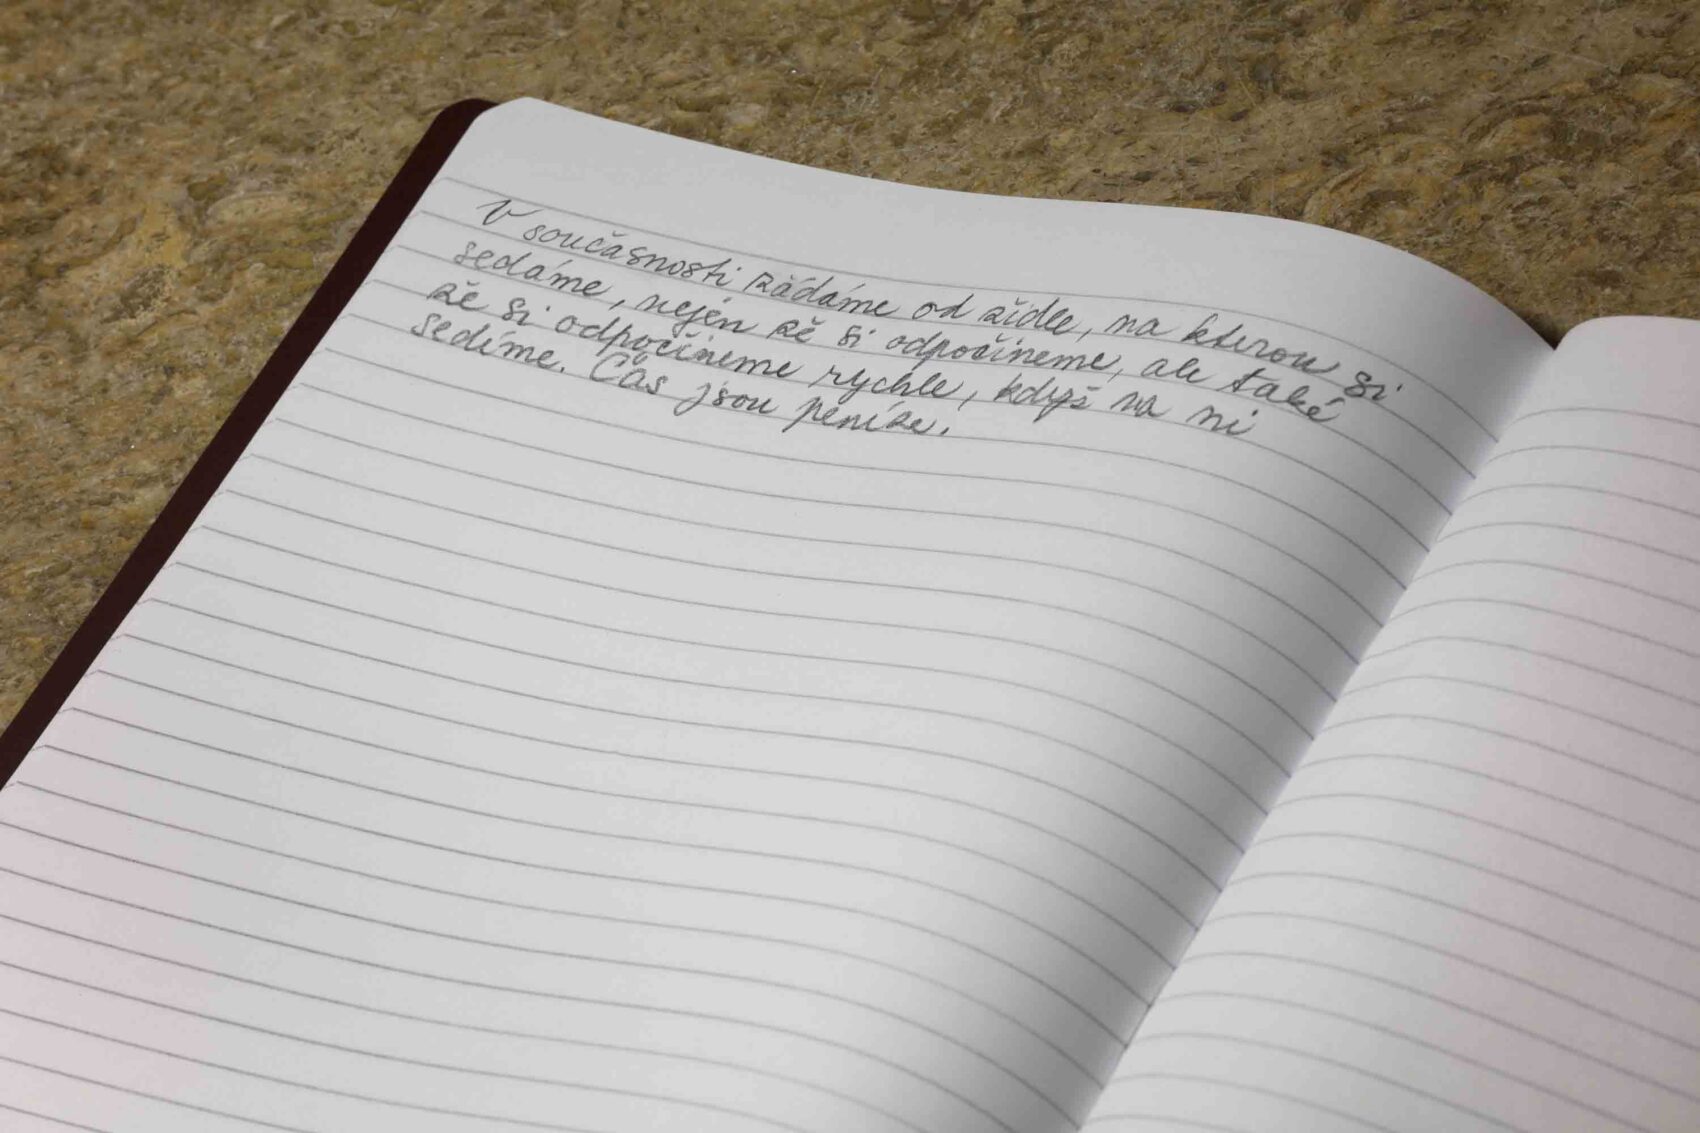 V současnosti žádáme od židle, na kterou si
sedáme, nejen že si odpočineme, ale také
že si odpočineme rychle, když na ni
sedíme. Čas jsou peníze.